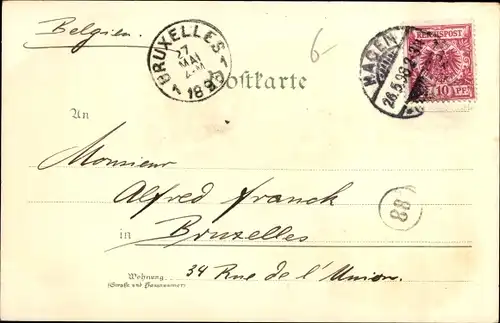 Belgien.
BRUXELLES 1
27
MAI
1898
6-
HAGEN
26.5.98
REICHSPOST
10 PF.
Postkarte
An
Monsieur
Alfred Franck
in Bruxelles
Wohnung 34 Rue de l'Union.
(Straße und Hausnummer)
88